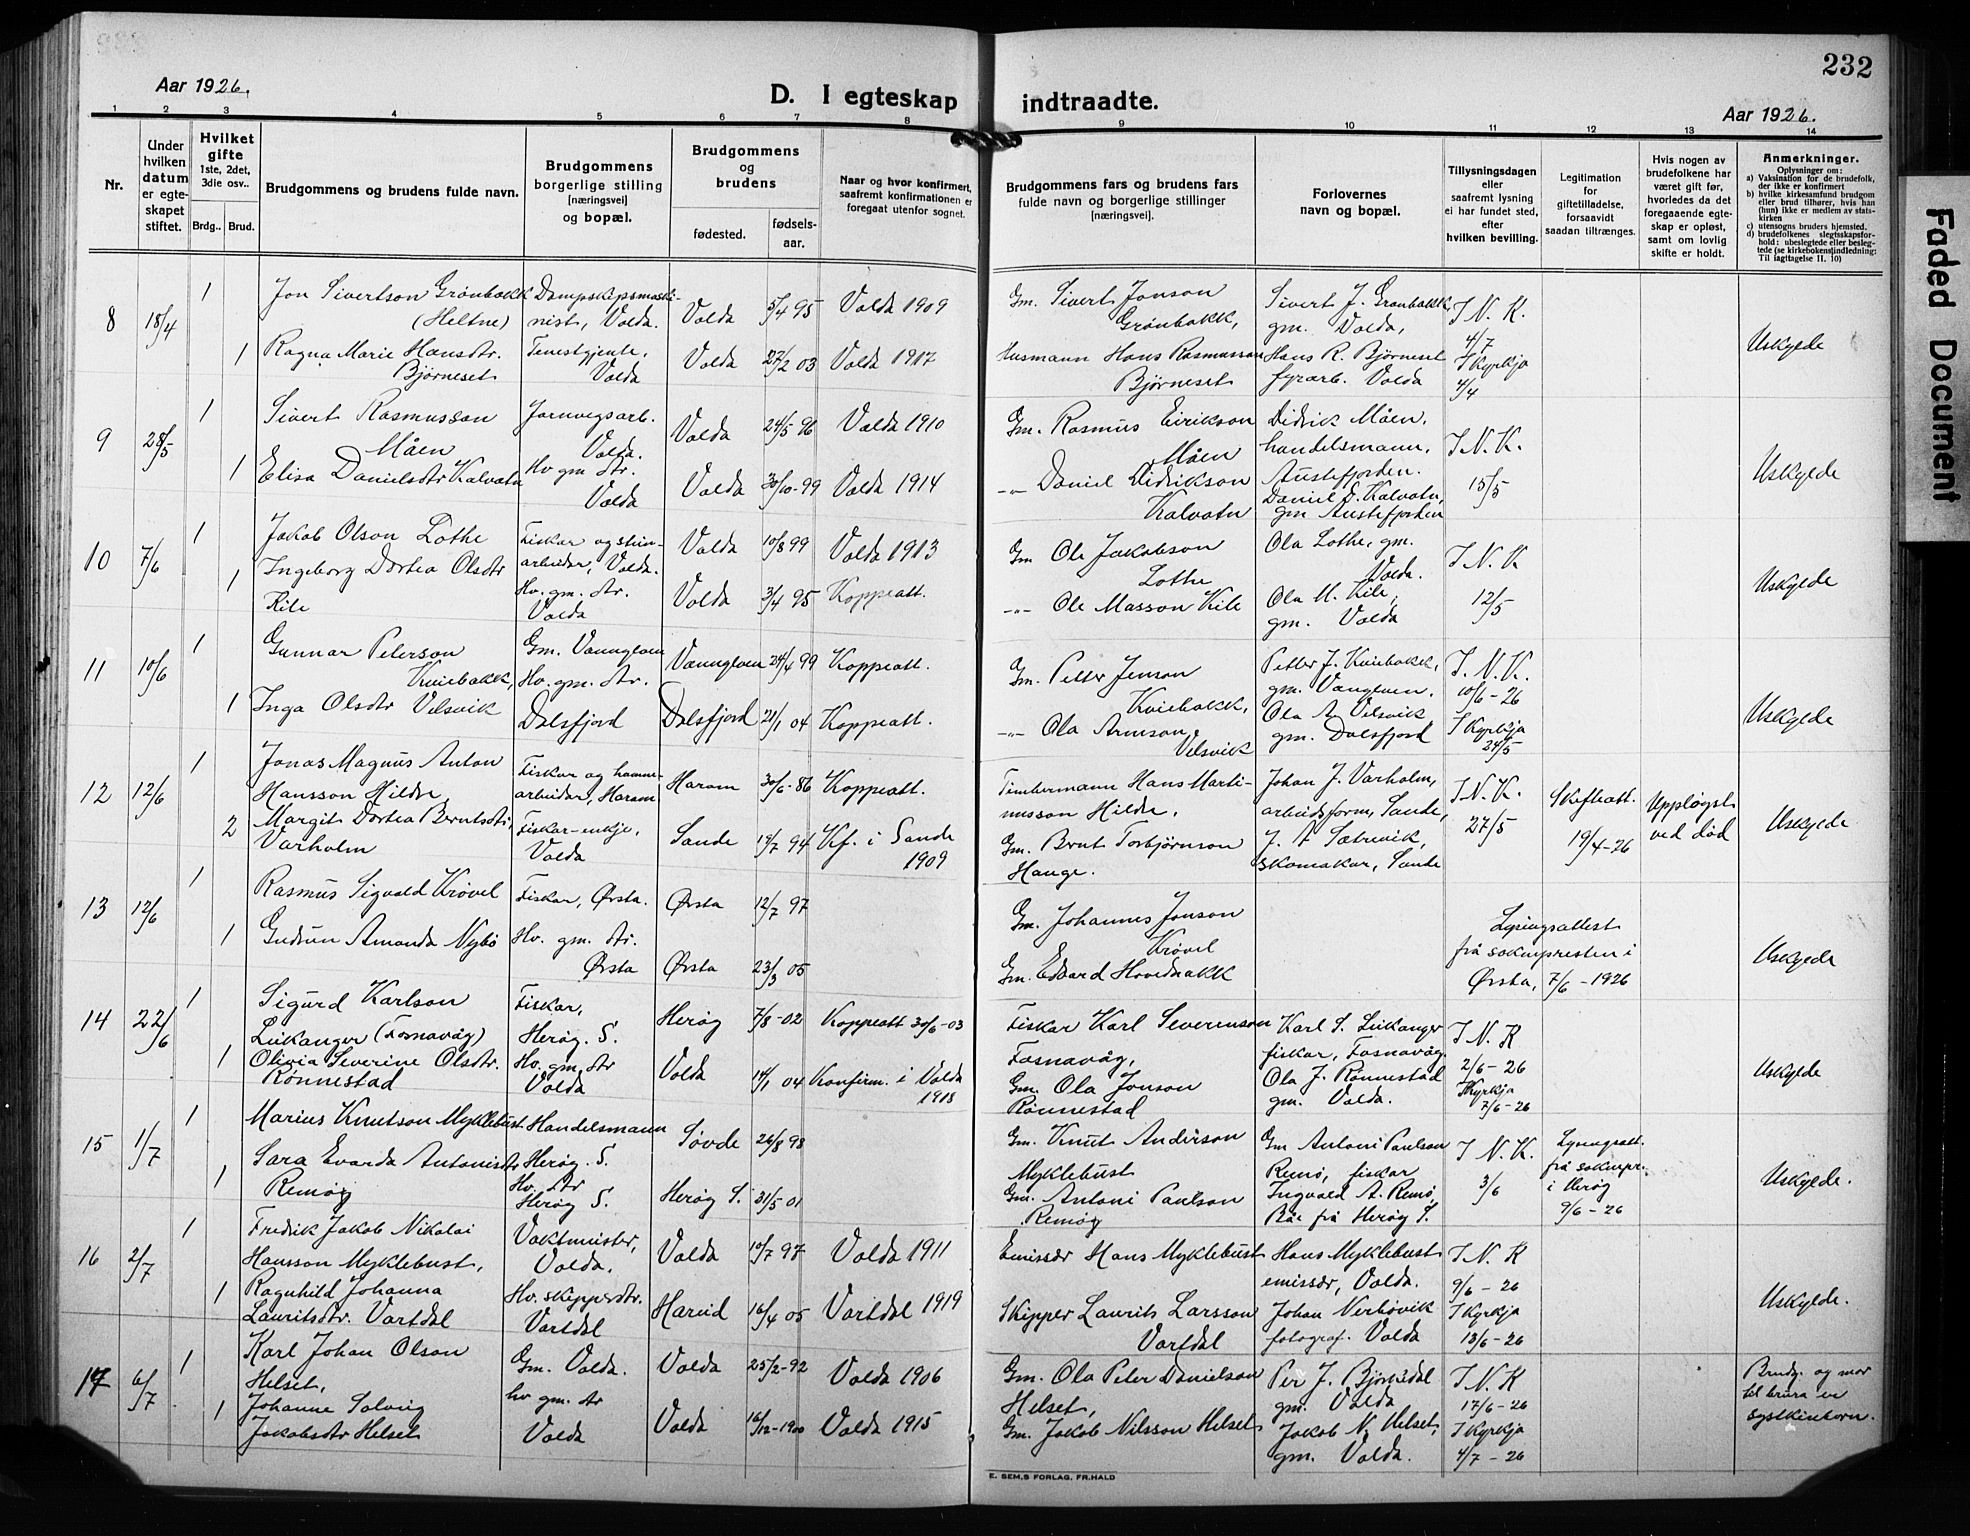 232
Aar 1926.
D. I egteskap indtraadte.
Aar 1926.
1 2 3 4 5 6 7 8 9 10 11 12 13 14
Nr.
Under hvilken datum er egteskapet stiftet.
Hvilket gifte 1ste, 2det, 3die osv..
Brdg.. Brud.
Brudgommens og brudens fulde navn.
Brudgommens borgerlige stilling [næringsvei] og bopæl.
Brudgommens og brudens
fødested. fødselsaar.
Naar og hvor konfirmert, saafremt konfirmationen er foregaat utenfor sognet.
Brudgommens fars og brudens fars fulde navn og borgerlige stillinger [næringsvei].
Forlovernes navn og bopæl.
Tillysningsdagen eller saafremt lysning ei har fundet sted, efter hvilken bevilling.
Legitimation for giftetilladelse, forsaavidt saadan tiltrænges.
Hvis nogen av brudefolkene har været gift før, hvorledes da det foregaaende egteskap er opløst, samt om lovlig skifte er holdt.
Anmerkninger.
Oplysninger om:
a) Vaksination for de brudefolk, der ikke er konfirmert
b) hvilke kirkesamfund brudgom eller brud tilhører, hvis han (hun) ikke er medlem av statskirken
c) utensogns bruders hjemsted.
d) brudefolkenes slegtsskapsforhold: ubeslegtede eller beslegtede (se kirkebokens indledning: Til iagttagelse II. 10)
8 18/4 1 Jon Sivertson Grønbakk (Heltne) Dampskipsmaskinist, Volda. Volda 5/4 95 Volda 1909 Gm. Sivert Jonson Grønbakk, Sivert J. Grønbakk, gm. Volda, I N. K. 4/7
1 Ragna Marie Hansdtr. Bjørneset Tenestgjente, Volda Volda 27/2 03 Volda 1917 Husmann Hans Rasmusson Bjørneset Hans R. Bjørneset fyrarb. Volda I Kyrkja 4/4 Uskylde
9 28/5 1 Sivert Rasmusson Måen Jarnvegsarb. Volda. Volda 24/5 96 Volda 1910 Gm. Rasmus Eirikson Måen Didrik Måen, handelsmann, Austefjorden. I N. K. 15/5
1 Elisa Danielsdtr Kalvatn Hv gm dtr. Volda Volda 30/10-99 Volda 1914 -"- Daniel Didrikson Kalvatn Daniel D. Kalvatn, gm Austefjorden Uskylde
10 7/6 1 Jakob Olson Lothe Fiskar og steinarbeidar, Volda. Volda 10/8 99 Volda 1913 Gm Ole Jakobson Lothe Ola Lothe, gm. Volda. I N. K 12/5
1 Ingeborg Dortea Olsdtr Kile Hv. gm. dtr. Volda Volda 3/4 95 Koppeatt. -"- Ole Masson Kile Ola M. Kile, gm. Volda Uskylde
11 10/6 1 Gunnar Peterson Kviebakk, Gm. Vanngloen Vanngloen 24/4 99 Koppeatt. Gm. Petter Jenson Kviebakk, Petter J. Kviebakk, gm. Vangloen. I. N. K. 10/6-26
1 Inga Olsdtr Velsvik Hv. gm. dtr. Dalsfjord Dalsfjord 21/1 04 Koppeatt. -"- Ola Arneson Velsvik Ola A. Velsvik, gm. Dalsfjord I Kyrkja 24/5 Uskylde
12 12/6 1 Jonas Magnus Anton Hansson Hildre Fiskar og hamnearbeidar, Haram Haram 30/6-86 Koppeatt. Timbermann Hans Martinusson Hildre. Johan J. Varholm, arbeidsform, Sande, I. N. K. 27/5
2 Margit Dortea Berntsdtr, Varholm Fiskar-enkje, Volda Sande 19/7 94 Kf. i Sande 1909 Gm. Brnt Torbjørnson Hauge. J. A Sætrevik, skomakar, Sande Skifteatt. 19/4-26 Uppløyst ved død Uskylde
13 12/6 1 Rasmus Sigvald Krøvel Fiskar, Ørsta. Ørsta 12/7 97 Gm. Johannes Jonson Krøvel Lysingsattest frå soknepresten i Ørsta, 7/6-1926
1 Gudrun Amanda Nybø Hv. gm. dtr. Ørsta Ørsta 23/3 05 Gm. Edvard Hovednakk Uskylde
14 22/6 1 Sigurd Karlson Leikanger (Fosnavåg) Fiskar, Herøy. S. Herøy 7/8-02 Koppeatt 30/6-03 Fiskar Karl Severinson Fosnavåg, Karl S. Leikanger fiskar, Fosnavåg. I N. K 2/6-26
1 Olivia Severine Olsdtr. Rönnestad Hv. gm. dtr Volda Volda 14/1 04 Konfirm. i Volda 1918 Gm. Ola Jonson Rönnestad Ola J. Rønnestad gm. Volda. I Kyrkja 7/6-26 Uskylde
15 1/7 1 Marius Knutson Myklebust Handelsmann Herøy. S. Søvde 26/8 98 Gm. Knut Anderson Myklebust Gm Antoni Paulson Remø, fiskar I N. K. 3/6
1 Sara Evarda Antonisdtr Remøy Hv. dtr Herøy S. Herøy S. 31/5 01 Gm. Antoni Paulson Remøy Ingvald A. Remø, Båe frå Herøy S. Lysingsatt. frå soknepr. i Herøy 9/6-26 Uskylde.
16 2/7 1 Fredrik Jakob Nikolai Hansson Myklebust, Vaktmeister, Volda. Volda 10/7 97 Volda 1911 Emissær Hans Myklebust Hans Myklebust emissær, Volda. I N. K 9/6-26
1 Ragnhild Johanna Lauritsdtr. Vartdal Hv. skipperdtr. Vartdal Hareid 16/4 05 Vartdal 1919 Skipper Laurits Larsson Vartdal Johan Nerbøvik fotograf. Volda I Kyrkja 13/6-26 Uskylde.
17 6/7 1 Karl Johan Olson Helset, Gm. Volda. Volda 25/2-92 Volda 1906 Gm. Ola Peter Danielson Helset, Per J. Bjørkedal gm. Volda I. N. K 17/6-26
1 Johanne Solveig Jakobsdtr Helset hv gm. dtr Volda Volda 16/12-1900 Volda 1915 Gm. Jakob Nilsson Helset Jakob N. Helset, gm. Volda. I Kyrkja 4/7-26 Brudg. og mor til brura er syskinborn.
E. SEM,S FORLAG, FR.HALD
Faded Document